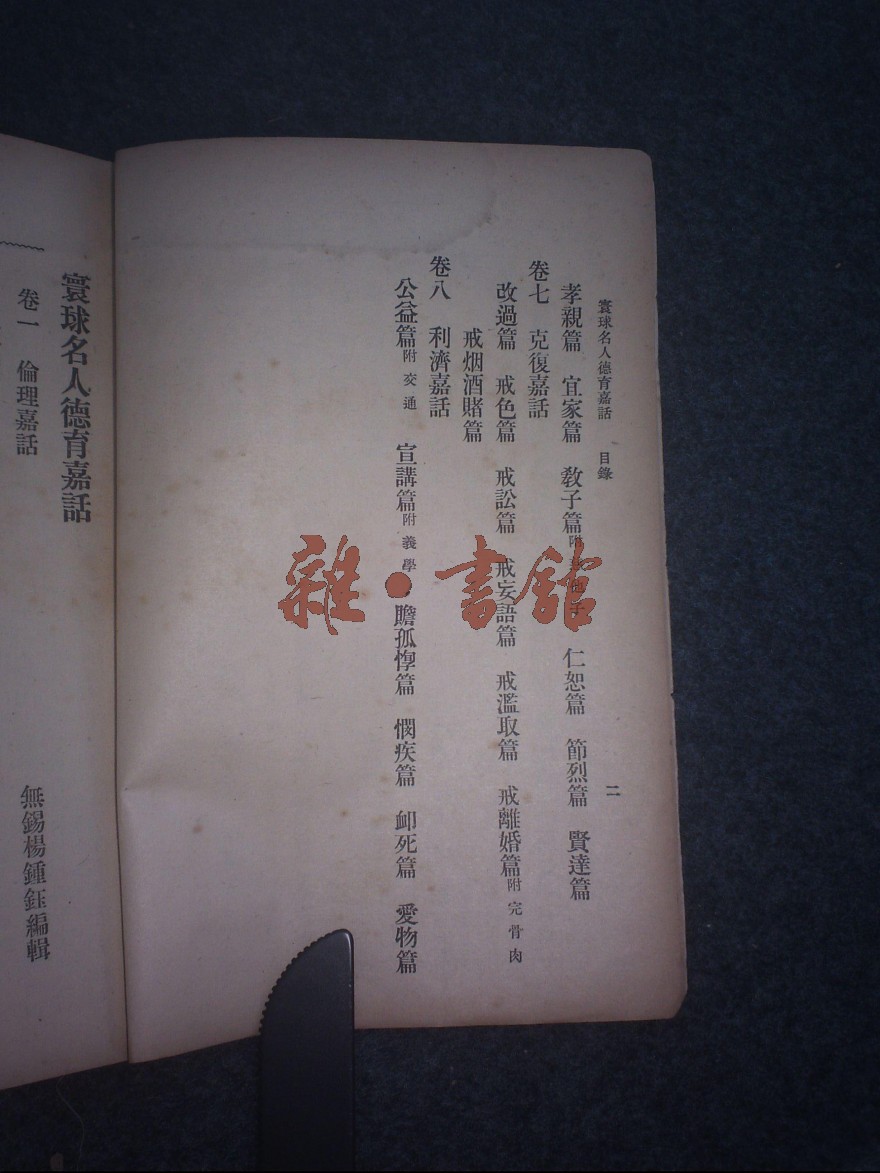 寰球名人德育嘉話 目錄 二
孝親篇 宜家篇 敎子篇附 子 仁恕篇 節烈篇 賢達篇
卷七 克復嘉話
改過篇 戒色篇 戒訟篇 戒妄語篇 戒濫取篇 戒離婚篇附完骨肉
戒烟酒賭篇
卷八 利濟嘉話
公益篇附交通 宣講篇附義學 贍孤惸篇 憫疾篇 卹死篇 愛物篇
寰球名人德育嘉話
卷一 倫理嘉話 無錫楊鍾鈺編輯
雜·書館